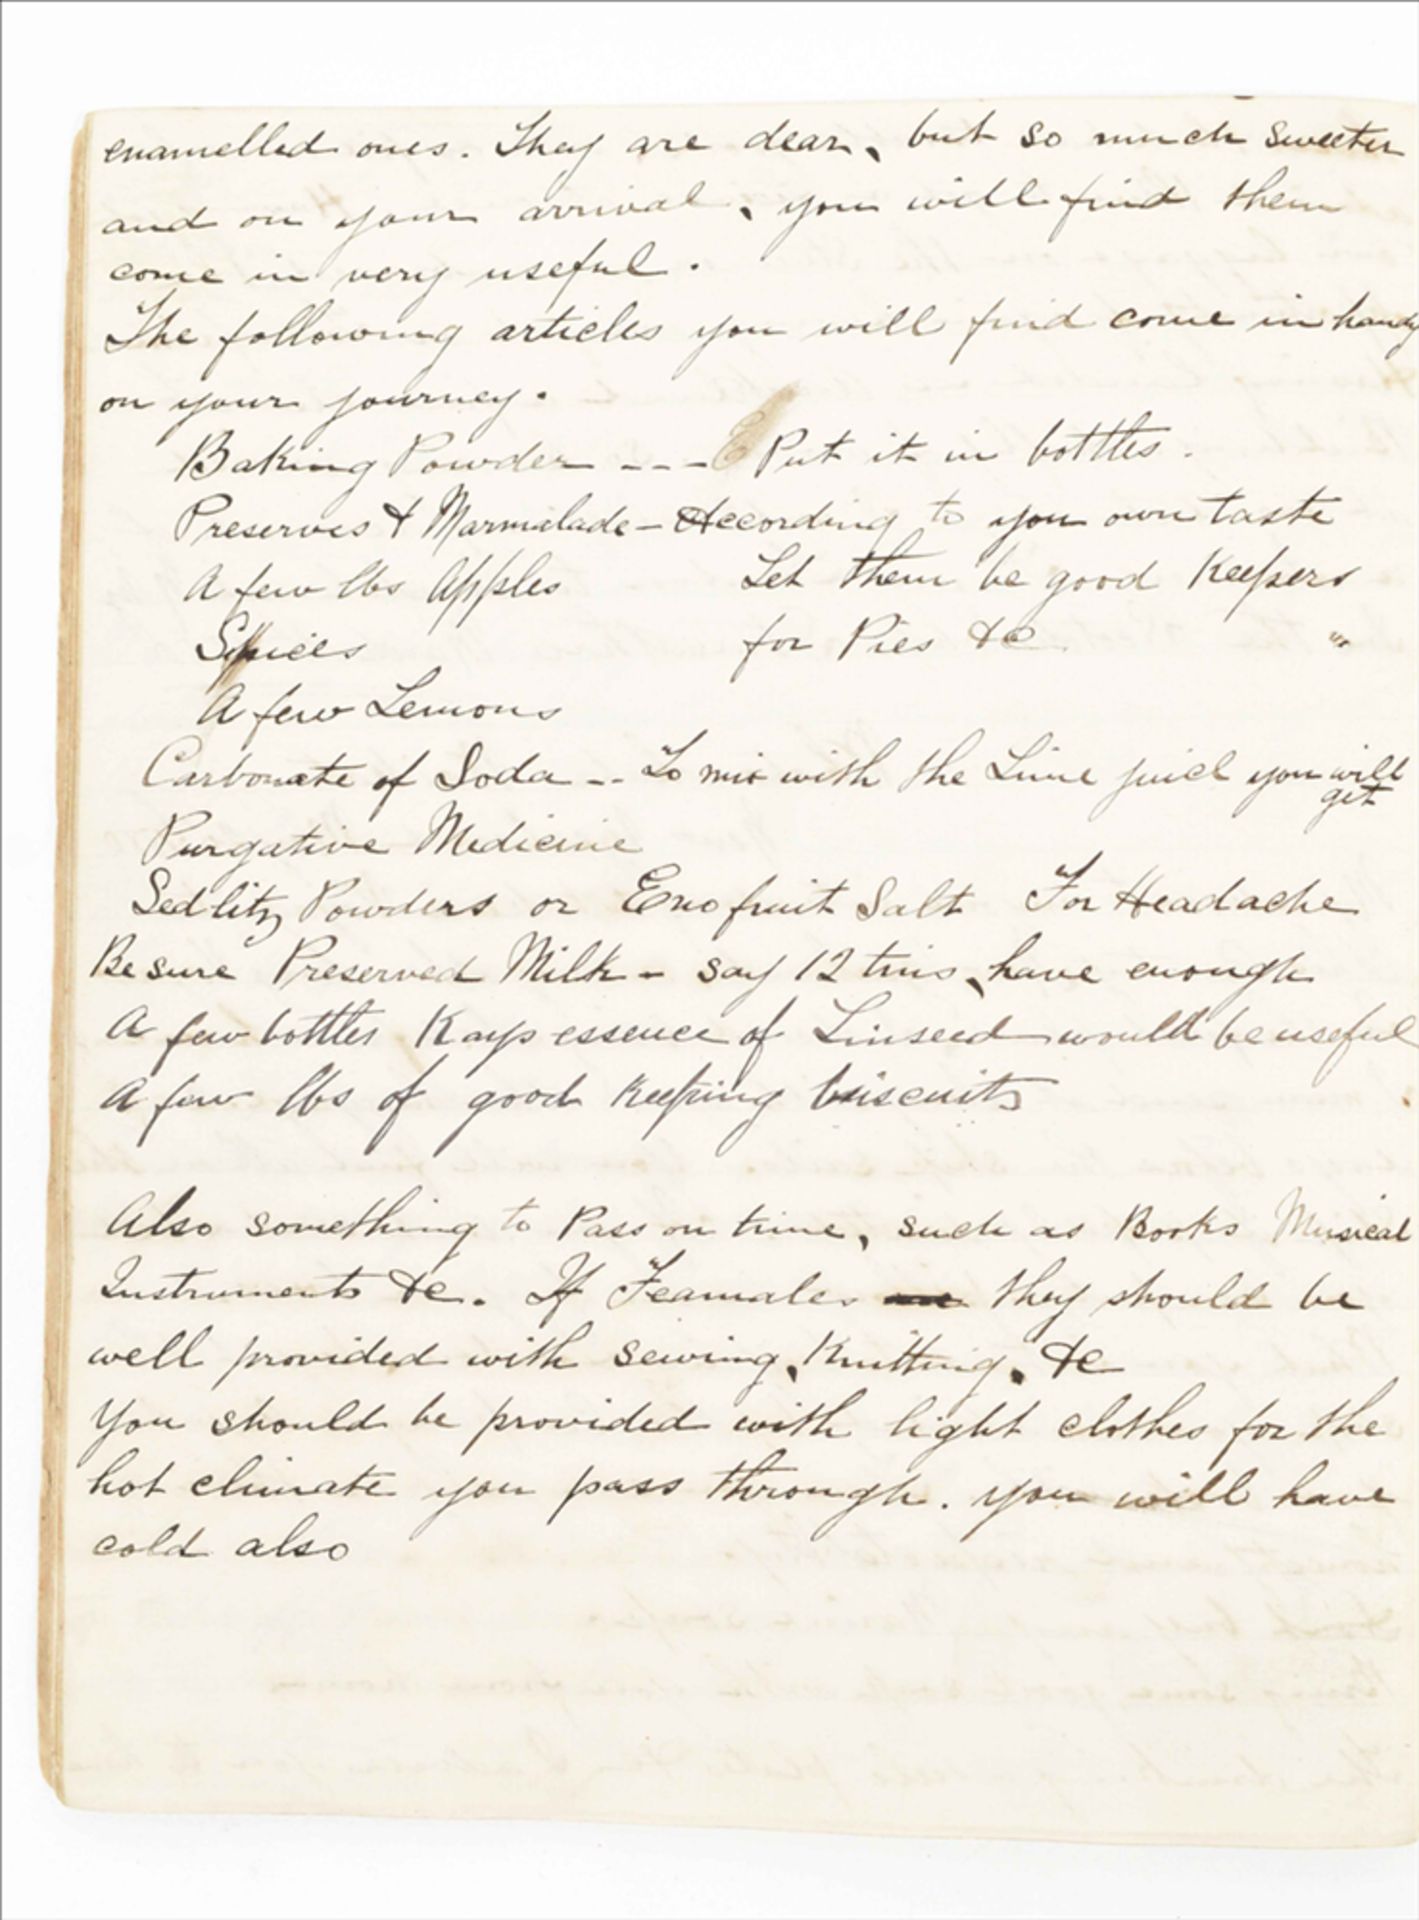 enamelled ones. They are dear, but so much sweeter
and on your arrival, you will find them
come in very useful.
The following articles you will find come in handy
on your journey.
Baking Powder --- Put it in bottles.
Preserves & Marmalade - According to you own taste
A few lbs Apples Let them be good Keepers
Spices for Pies &c "
A few Lemons
Carbonate of Soda -- To mix with the Lime juice you will
get
Purgative Medicine
Sedlitz Powders or Eno fruit Salt For Headache
Be sure Preserved Milk - say 12 tins, have enough
A few bottles Kays essence of Linseed would be useful
A few lbs of good Keeping biscuits
Also something to Pass on time, such as Books Musical
Instruments &c. If Feamales they should be
well provided with sewing, Knitting, &c
You should be provided with light clothes for the
hot climate you pass through. You will have
cold also